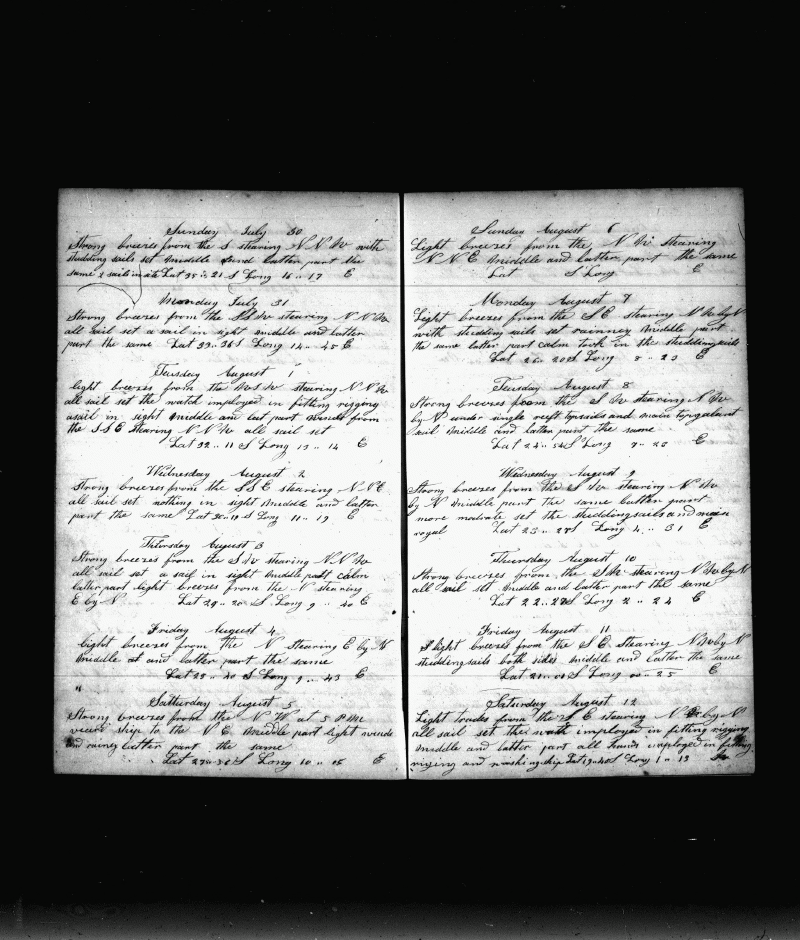 Sunday July 30
Strong breezes from the S stearing N N W with
studding sails set middle and latter part the
same 2 sails in site Lat 35 .. 21 S Long 16 .. 17 E
Monday July 31
Strong breezes from the S S W stearing N N W
all sail set a sail in sight middle and latter
part the same Lat 33 .. 36 S Long 14 .. 45 E
Tuesday August 1
light breezes from the W S W stearing N N W
all sail set the watch imployed in fitting rigging
a sail in sight middle and last part winds from
the S S E stearing N N W all sail set
Lat 32 .. 11 S Long 13 .. 14 E
Wednesday August 2
Strong breezes from the S S E stearing N N E
all sail set nothing in sight middle and latter
part the same Lat 30 .. 19 S Long 11 .. 19 E
Thursday August 3
Strong breezes from the S W stearing N N W
all sail set a sail in sight middle part calm
latter part light breezes from the N stearing
E by N Lat 29 .. 20 S Long 9 .. 40 E
Friday August 4
light breezes from the N stearing E by N
middle and latter part the same
Lat 28 .. 40 S Long 9 .. 43 E
Satturday August 5
Strong breezes from the N W at 5 P M
ship to the N E middle part light winds
and rainey latter part the same
Lat 27 .. S Long 10 .. 15 E
Sunday August 6
Light breezes from the N W stearing
N N E middle and latter part the same
Lat S Long E
Monday August 7
Light breezes from the S E stearing N W by N
with studding sails set rainney middle part
the same latter part calm took in the studdingsails
Lat 26 .. 20 S Long 8 .. 23 E
Tuesday August 8
Strong breezes from the S W stearing N W
by N under single reeft topsails and main topgalant
sail middle and latter part the same
Lat 24 .. 54 S Long 7 .. 20 E
Wednesday August 9
Strong breezes from the S W stearing N W
by N middle part the same latter part
more moderate set the studdingsails and main
royal Lat 23 .. 27 S Long 4 .. 31 E
Thursday August 10
Strong breezes from the S W stearing N W by N
all sail set middle and latter part the same
Lat 22 .. 22 S Long 2 .. 24 E
Friday August 11
light breezes from the S E stearing N W by N
studdingsails both sides middle and latter the same
Lat 21 .. 01 S Long 00 .. 25 E
Saturday August 12
Light trades from the S E stearing N W by N
all sail set the wath imployed in fitting rigging
middle and latter part all hands imployed in fitting
riging and washing ship Lat 19 .. 40 S Long 1 .. 13 W